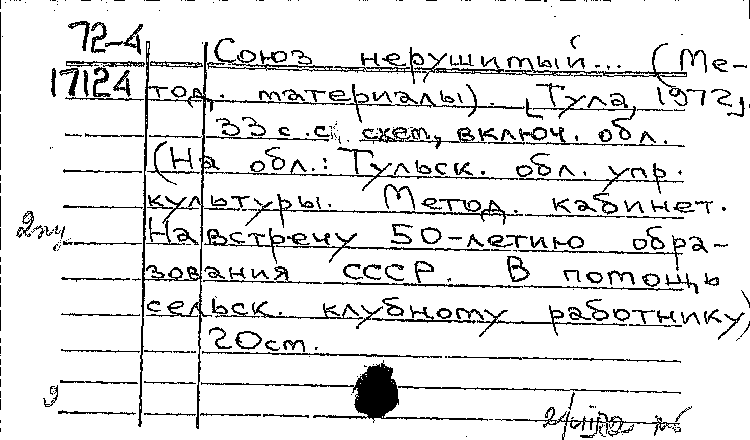 72-4
17124
Союз нерушимый... (Ме-
тод. материалы). [Тула, 1972].
33 с. с схем, включ. обл.
(На обл.: Тульск. обл. упр.
культуры. Метод. кабинет.
Навстречу 50-летию обра-
зования СССР. В помощь
сельск. клубному работнику)
20 см.